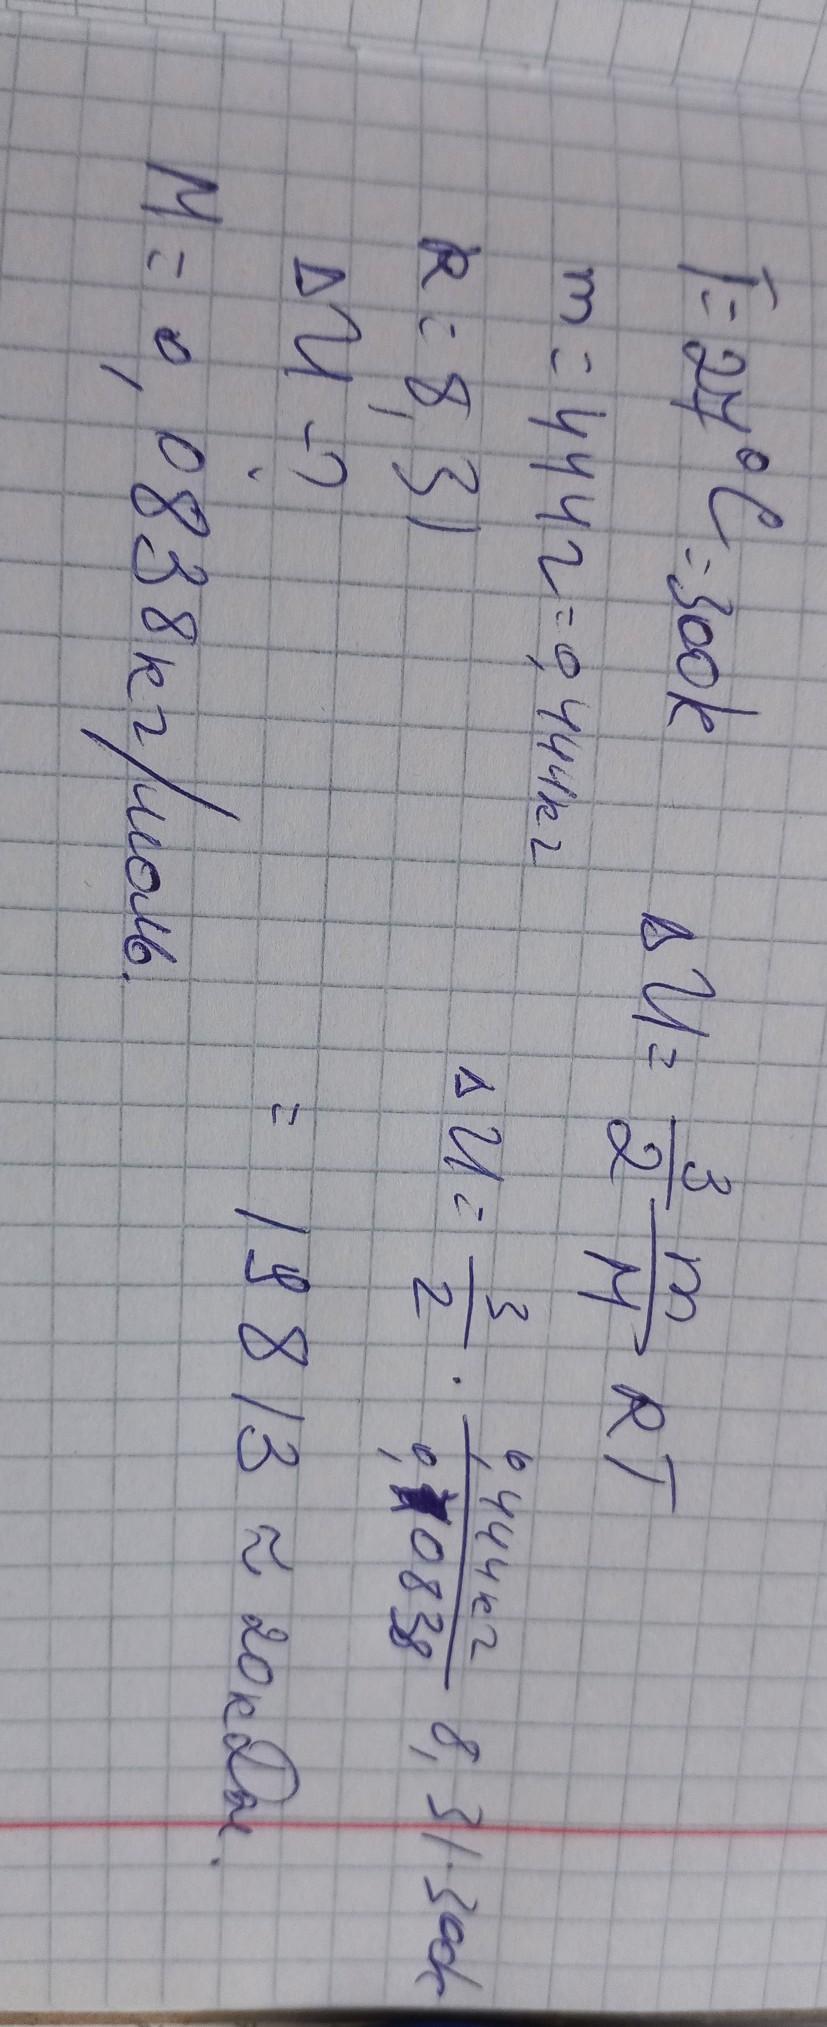 T = 27°C = 300k
m = 444г = 0,444кг
R = 8,31
ΔU - ?
M = 0,0838кг/моль.
ΔU = 3/2 m/M RT
ΔU = 3/2 · 0,444кг/0,0838 8,31·300k
= 19813 ≈ 20кДж.